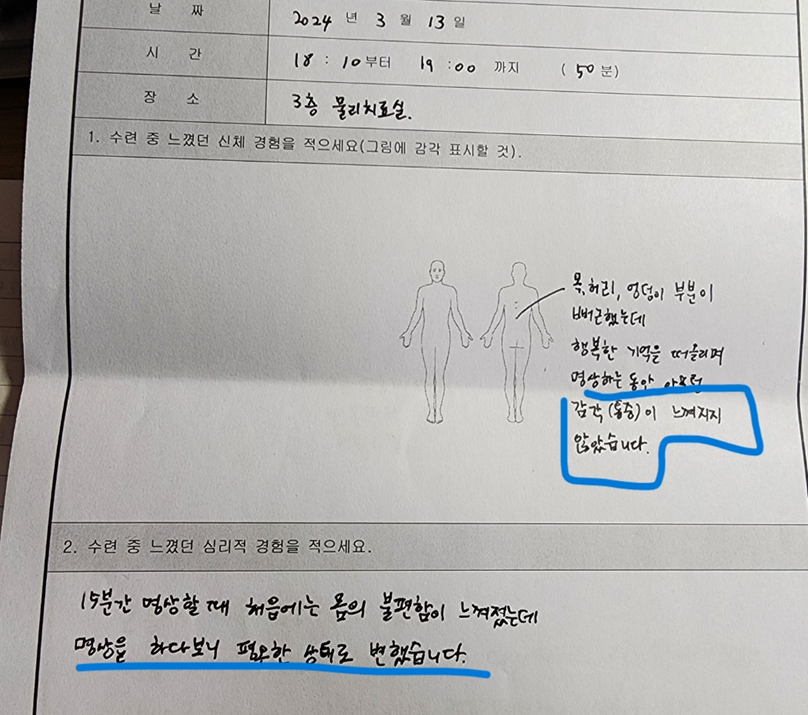 날 짜 2024 년 3 월 13 일
시 간 18 : 10 부터 19 : 00 까지 ( 50 분)
장 소 3층 물리치료실.
1. 수련 중 느꼈던 신체 경험을 적으세요(그림에 감각 표시할 것).
목, 허리, 엉덩이 부분이
뻐근했는데
행복한 기억을 떠올리며
명상하는 동안 아프던
감각(통증)이 느껴지지
않았습니다.
2. 수련 중 느꼈던 심리적 경험을 적으세요.
15분간 명상할 때 처음에는 몸의 불편함이 느껴졌는데
명상을 하다보니 편안한 상태로 변했습니다.